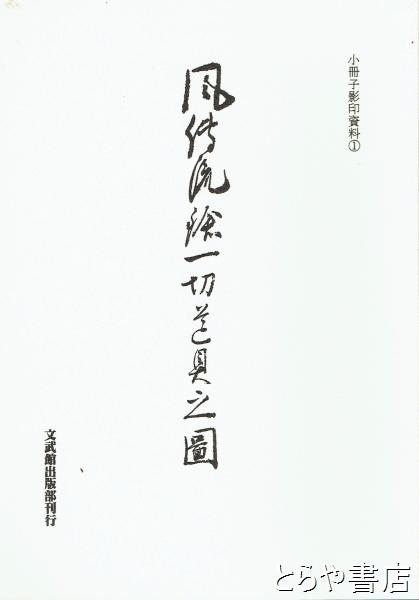 小冊子影印資料①
風傳流鎗一切道具之圖
文武館出版部刊行
とらや書店